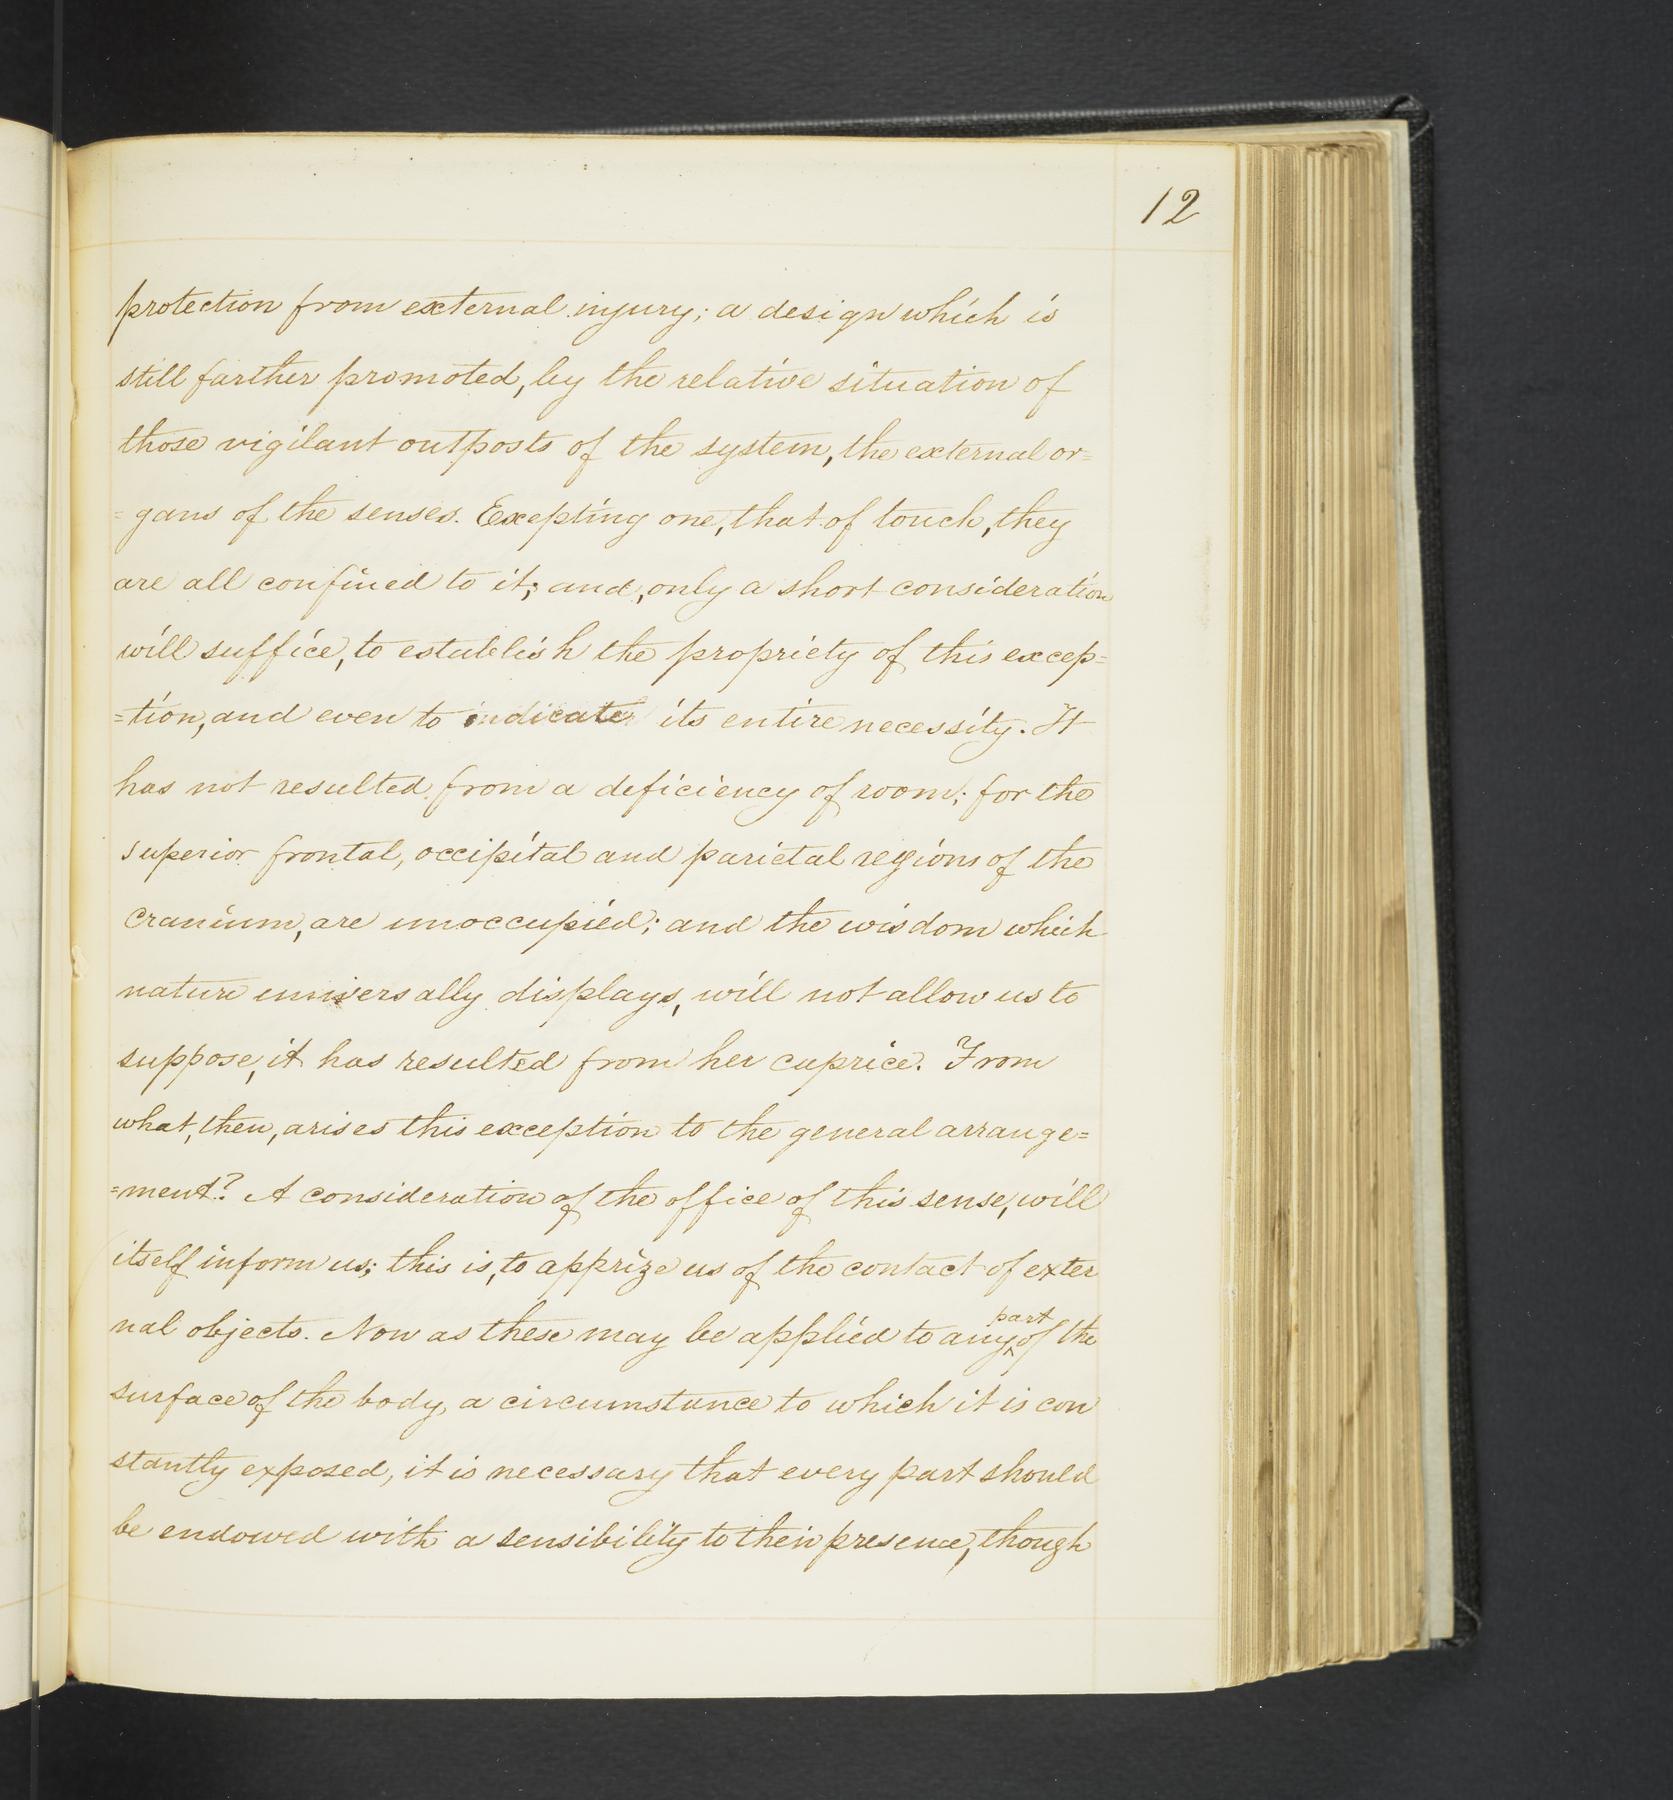 12
protection from external injury; a design which is
still farther promoted, by the relative situation of
those vigilant outposts of the system, the external or=
=gans of the senses. Excepting one, that of touch, they
are all confined to it; and, only a short consideration
will suffice, to establish the propriety of this excep=
=tion, and even to indicate its entire necessity. It
has not resulted from a deficiency of room; for the
superior frontal, occipital and parietal regions of the
cranium, are unoccupied; and the wisdom which
nature universally displays, will not allow us to
suppose, it has resulted from her caprice. From
what, then, arises this exception to the general arrange=
=ment? A consideration of the office of this sense, will
itself inform us; this is, to apprize us of the contact of exter
nal objects. Now as these may be applied to any part of the
surface of the body, a circumstance to which it is con
stantly exposed, it is necessary that every part should
be endowed with a sensibility to their presence, though